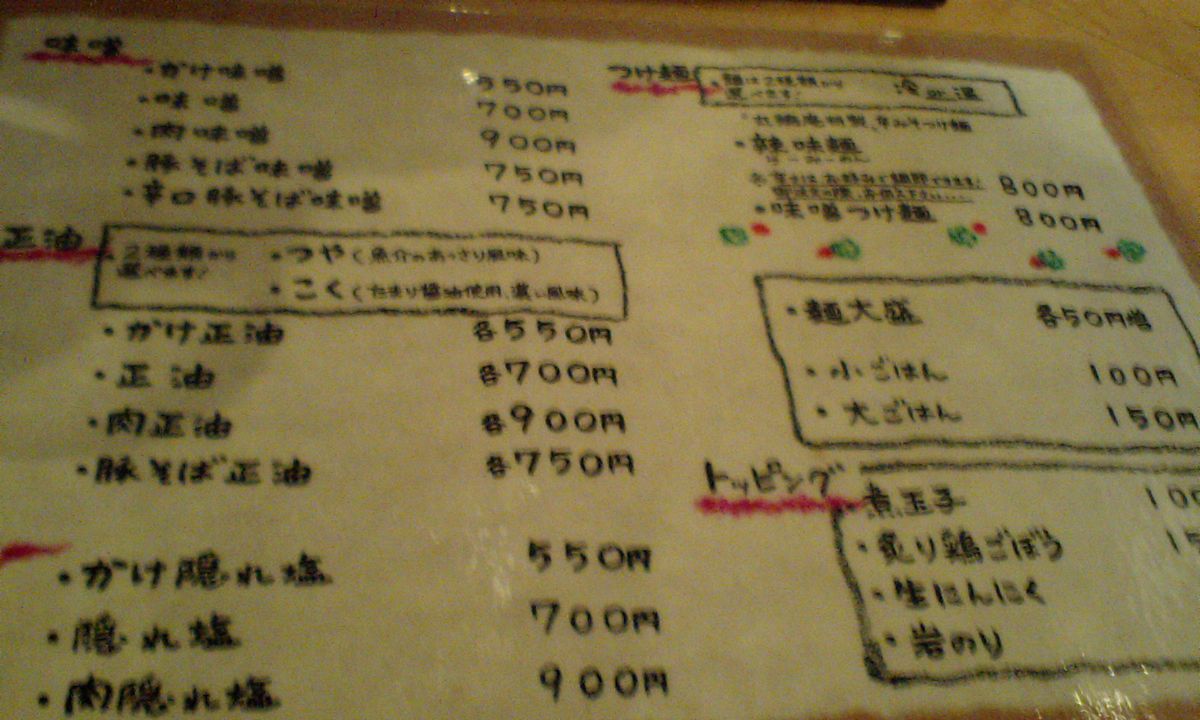 味噌
・かけ味噌 550円
・味噌 700円
・肉味噌 900円
・豚そば味噌 750円
・辛口豚そば味噌 750円
正油
2種類から
選べます!
・つや(魚介のあっさり風味)
・こく(たまり醤油使用、濃い風味)
・かけ正油 各550円
・正油 各700円
・肉正油 各900円
・豚そば正油 各750円
・かけ隠れ塩 550円
・隠れ塩 700円
・肉隠れ塩 900円
つけ麺
・麺は2種類から
選べます!
冷 温
特製、辛みそつけ麺
・辣味麺
らーみーめん
800円
・味噌つけ麺 800円
・麺大盛 各50円増
・小ごはん 100円
・大ごはん 150円
トッピング
・煮玉子 100
・炙り鶏ごぼう 15
・生にんにく
・岩のり